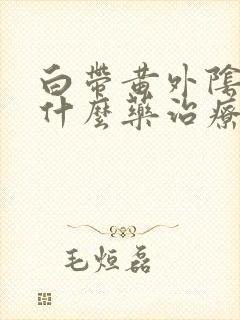 白帶黃外陰
什麼藥治療
毛烜磊